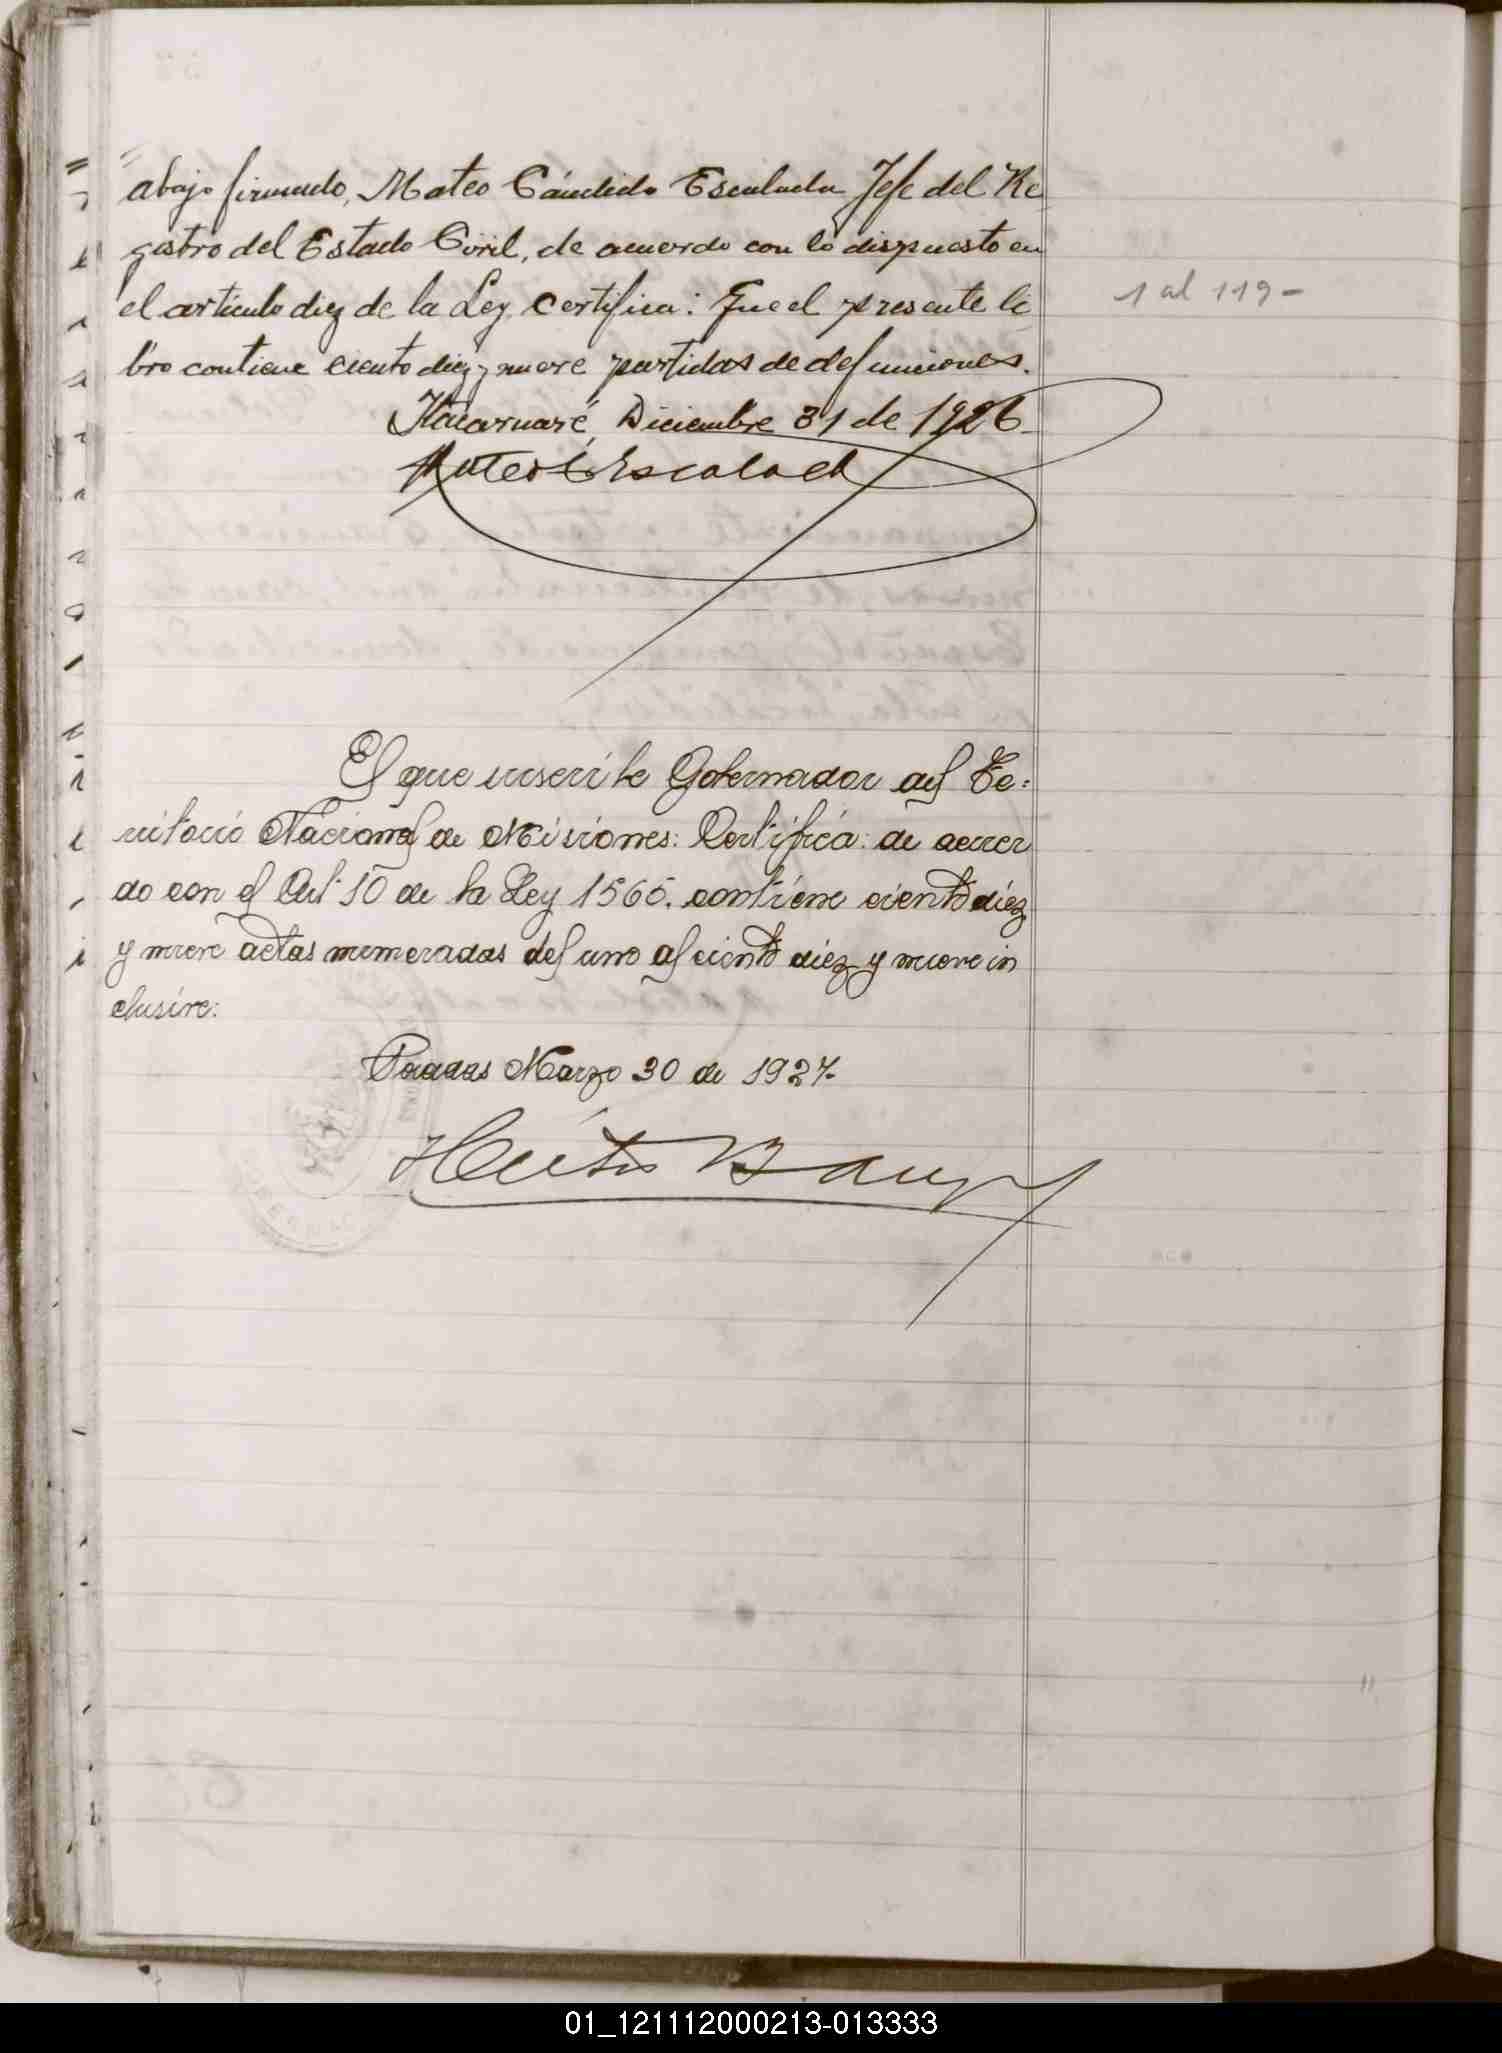 abajo firmado, Mateo Cándido Escalada Jefe del Re
gistro del Estado Civil, de acuerdo con lo dispuesto en
el articulo diez de la Ley, Certifica: Que el presente li
bro contiene ciento diez y nueve partidas de defunciones.
Itacaruaré, Diciembre 31 de 1926
Mateo C. Escalada
1 al 119-
El que suscribe Gobernador del Te:
rritorio Nacional de Misiones: Certifica: de acuer
do con el Art. 10 de la Ley 1565. contiene ciento diez
y nueve actas numeradas del uno al ciento diez y nueve in
clusive:
Posadas Marzo 30 de 1927.
Héctor Barreyro
01_121112000213-013333